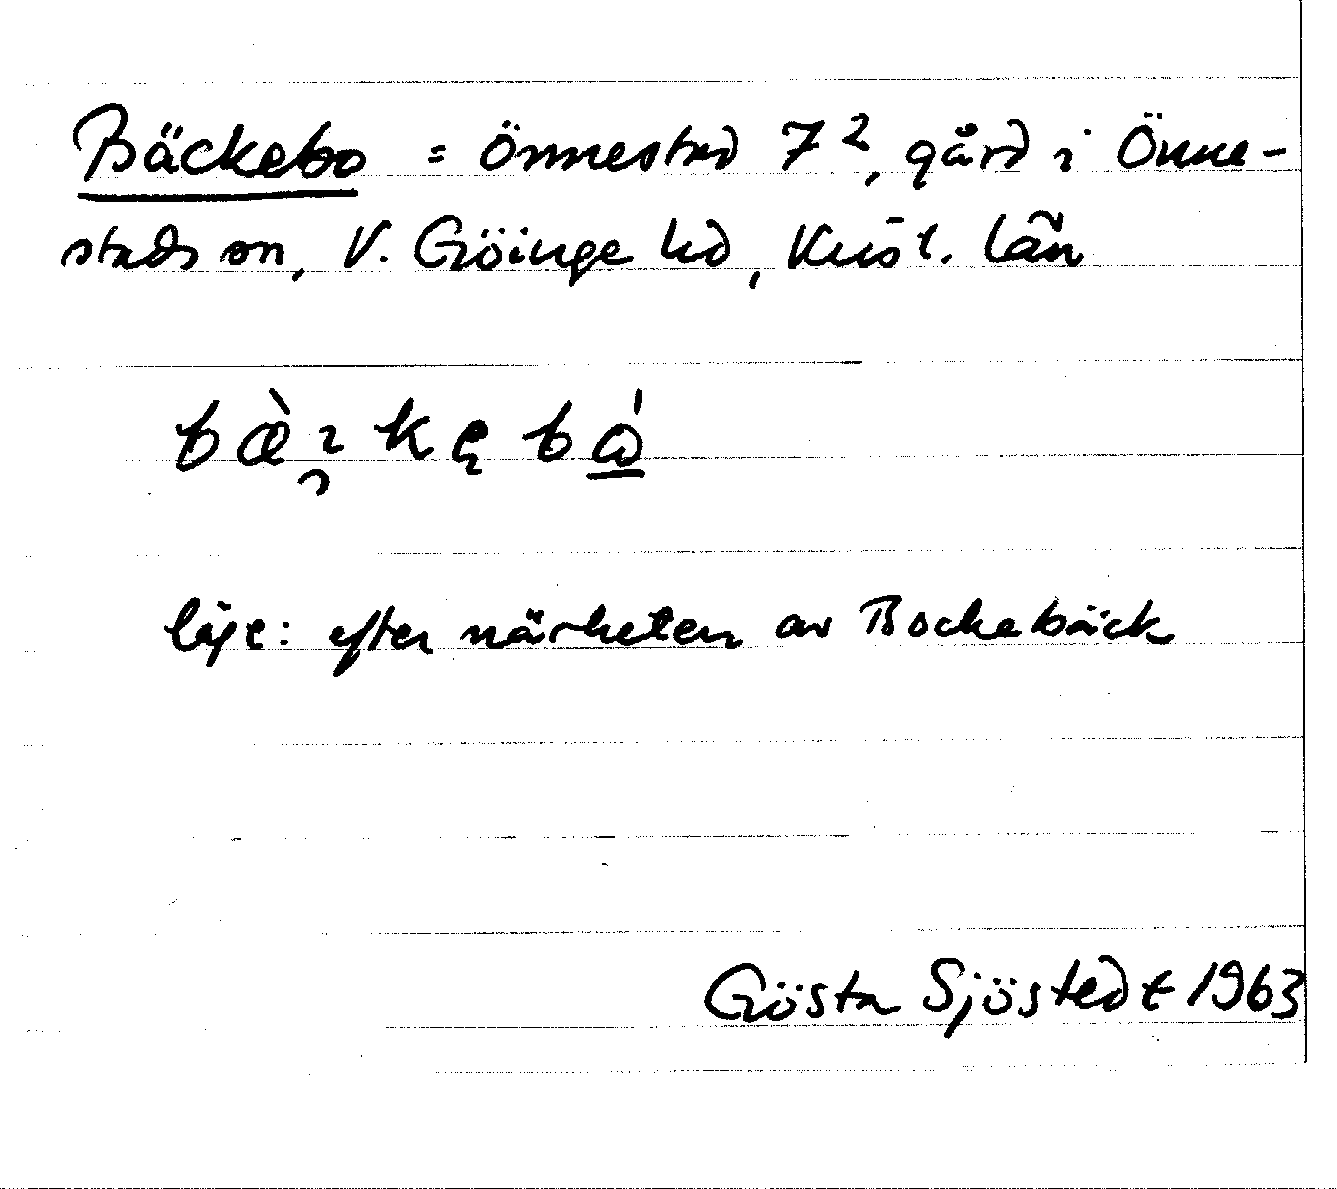 Bäckebo = Önnestad 7², gård i Önne-
stads sn, V. Göinge hd, Krist. län
läge: efter närheten av Bockebäck
Gösta Sjöstedt 1963